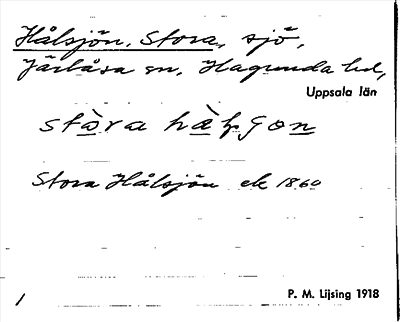 Hålsjön, Stora, sjö,
Järlåsa sn, Hagunda hd,
Uppsala län
stàra hàʟ̥ʃön
Stora Hålsjön ek 1860
1
P. M. Lijsing 1918